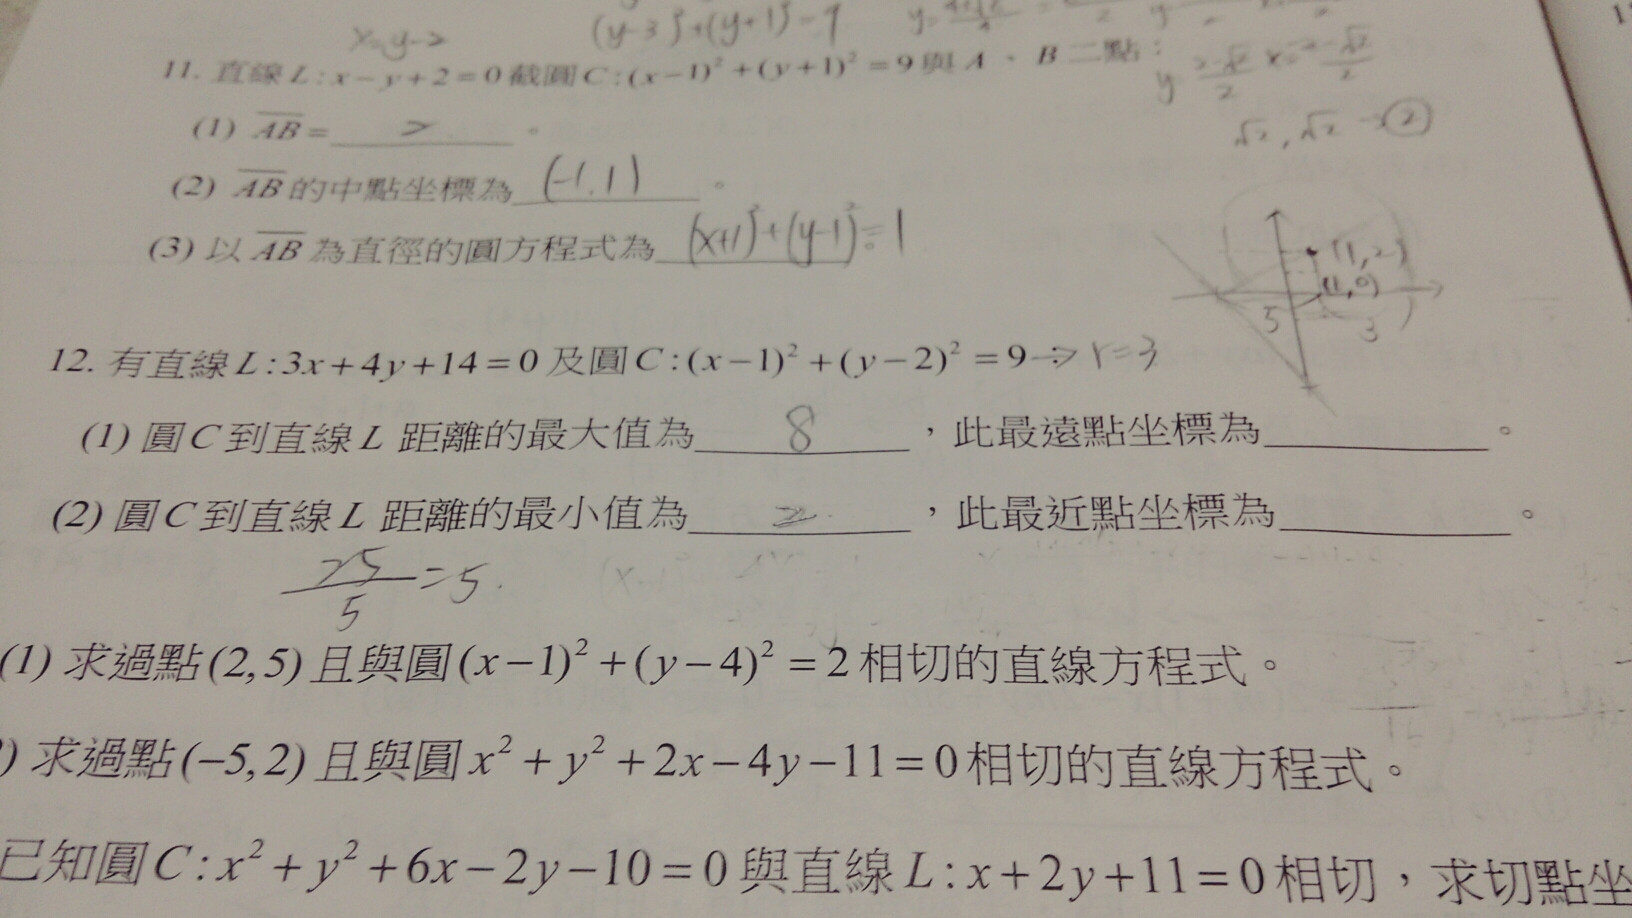 x=y-2
(y-3)²+(y+1)²=9
11. 直線L:x-y+2=0截圓C:(x-1)²+(y+1)²=9與A、B二點:
(1) AB= 2 。
√2, √2 → 2
(2) AB的中點坐標為 (-1,1) 。
(3) 以AB為直徑的圓方程式為 (x+1)²+(y-1)²=1 。
(1,2)
(1,0)
5
3
12. 有直線L:3x+4y+14=0及圓C:(x-1)²+(y-2)²=9→r=3
(1) 圓C到直線L距離的最大值為 8 ,此最遠點坐標為 。
(2) 圓C到直線L距離的最小值為 2 ,此最近點坐標為 。
25/5=5
(1) 求過點(2,5)且與圓(x-1)²+(y-4)²=2相切的直線方程式。
) 求過點(-5,2)且與圓x²+y²+2x-4y-11=0相切的直線方程式。
已知圓C:x²+y²+6x-2y-10=0與直線L:x+2y+11=0相切,求切點坐